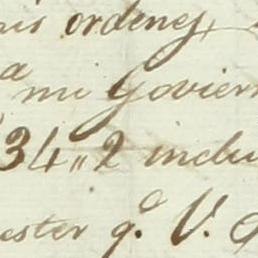 ordenes
a mi Goviern
34,,2 inclu
ester q.e V.